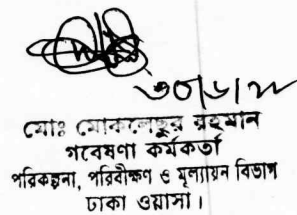 ৩০/৬/২২
মোঃ মোকলেছুর রহমান
গবেষণা কর্মকর্তা
পরিকল্পনা, পরিবীক্ষণ ও মূল্যায়ন বিভাগ
ঢাকা ওয়াসা।